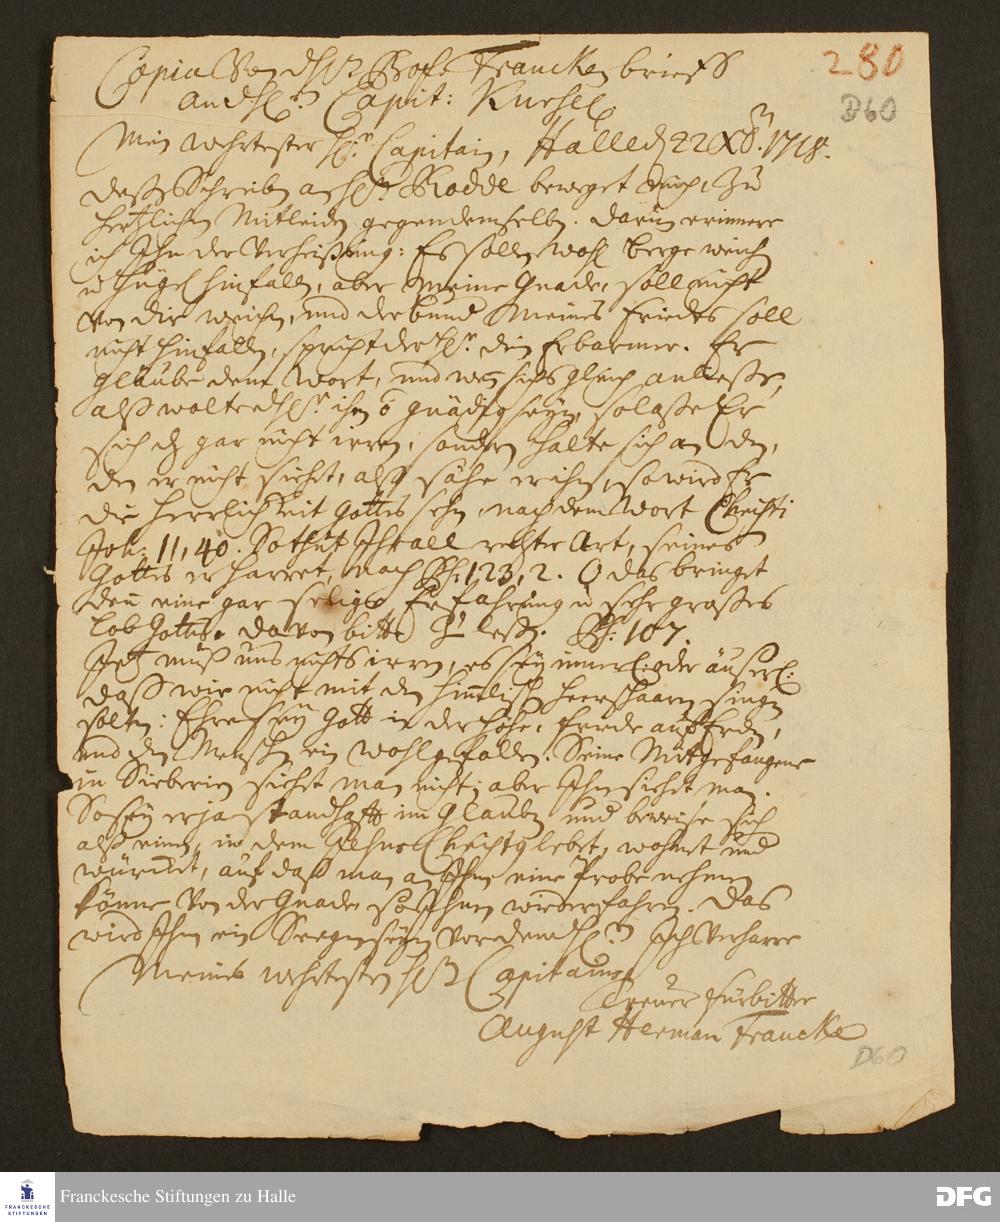 280
D60
Copia Von d H Prof. Francken brieff
an d H. Capit: Kursel.
Mein wehrtester H. Capitain, Halle d 22 Xbr. 1718.
Deßen Schreiben an H. Rodde beweget mich, zu
hertzlichen Mitleiden gegen demselben. Darum erinnere
ich Ihn der Verheißung: Es sollen wohl berge weichen
u Hügel hinfallen, aber Meine Gnade, soll nicht
Von dir weichen, und der bund Meines Friedes soll
nicht hinfallen, spricht der H. dein Erbarmer. Er
Gläube dem Wort, und wen sichs gleich anließe,
alß wolte d H. ihm gnädig seyn, so laße Er
sich gar nicht irren, sondern halte sich an den,
den er nicht siehet, alß sähe er ihn, so wird Er
die Herrlichkeit Gottes sehen, nach dem Wort Christi
Joh: 11, 40. So thut Israel rechter Art, seines
Gottes er harret, nach Ps: 123, 2. O das bringet
den eine gar selige Erfahrung u sehr großes
Lob Gottes. davon bitte zu lesen. Ps: 107.
Jetz muß uns nichts irren, es sey innerl: oder äuserl:
daß wir nicht mit den himlischen Heerschaaren singen
solten: Ehre sey Gott in der Höhe, Friede auf Erden,
und den Menschen ein Wohlgefallen. Seine Mitgefangene
in Sieberien siehet man nicht; aber Ihn siehet man.
So sey er ja standhafft im Glauben und beweise sich
alß einen, in dem Jesus Christus lebet, wohnet und
würcket, auf daß man an Ihm eine Probe nehmen
könne Von der Gnade so Ihm wiederfahren. Das
wird Ihm ein Seegen seyn Vor dem H. Ich Verharre
Meines wehrtesten H Capitains
Treuer Fürbitter
August Herman Francke
D60
FRANCKESCHE
STIFTUNGEN
Franckesche Stiftungen zu Halle
DFG